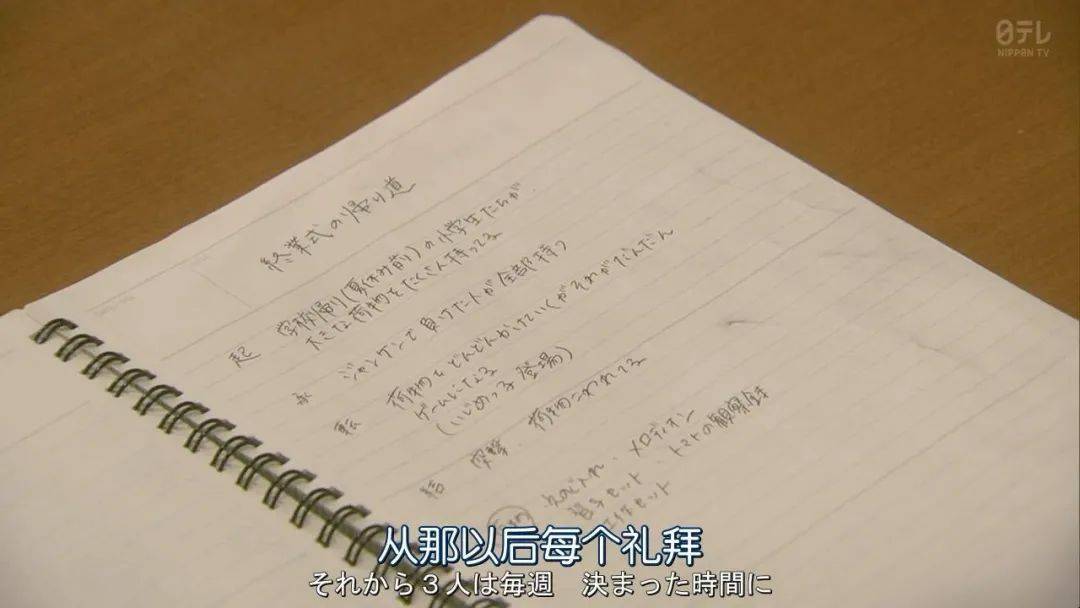 日テレ
NIPPON TV
終業式の帰り道
起 学校帰り(夏休み前)の小学生たちが
大きな荷物をたくさん持ってる
承 ジャンケンで負けた人が全部持つ
転 荷物をどんどんかけていくがそれがだんだん
ゲームになる
(いじめっ子登場)
結 突撃、荷物こわれてる
メロディオン
習字セット・トマトの観察録
工作セット
从那以后每个礼拜
それから3人は毎週 決まった時間に